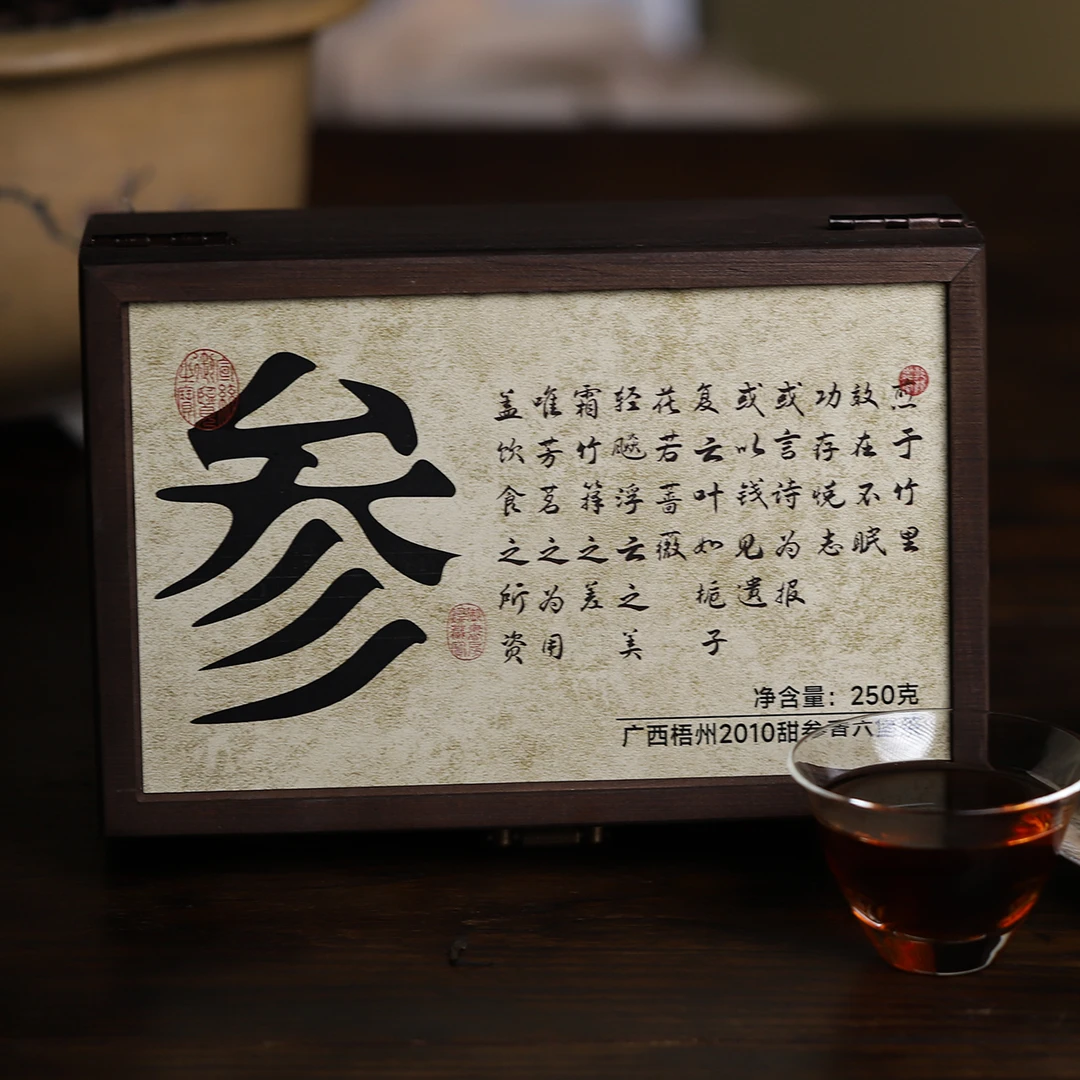 参
煎于竹里
效在不眠
功存悦志
或言诗为报
或以钱见遗
复云叶如栀子
花若蔷薇
轻飚浮云之美
霜竹箨之差
唯芳茗之为用
盖饮食之所资
净含量：250克
广西梧州2010甜参香六堡茶